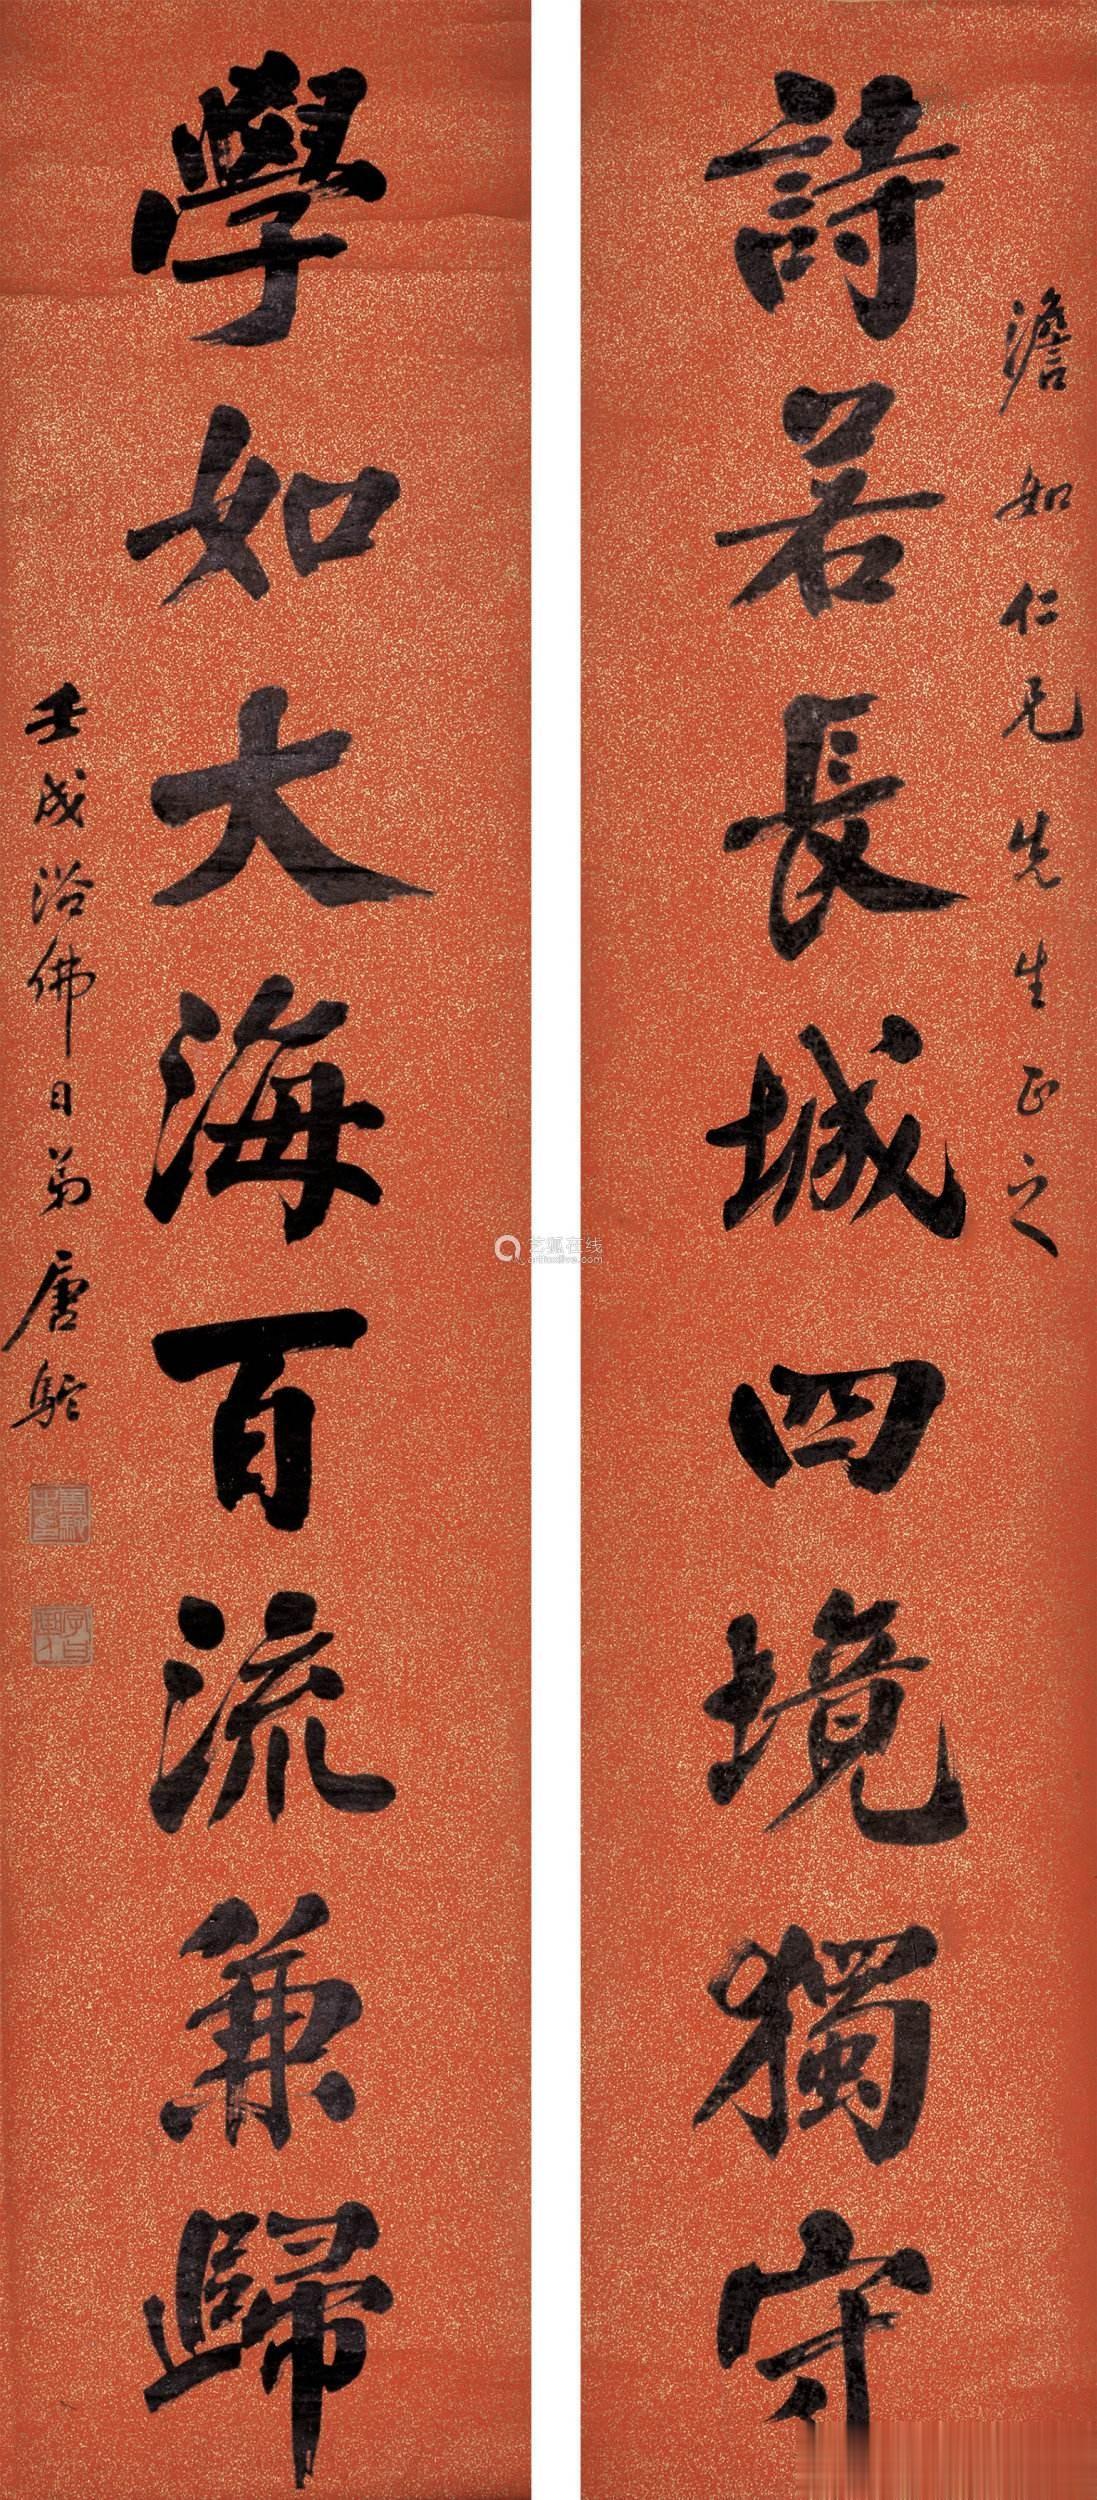 澹如仁兄先生正之
詩若長城四境獨守
學如大海百流兼歸
壬戌浴佛日弟唐駝
艺狐在线
artfoxlive.com